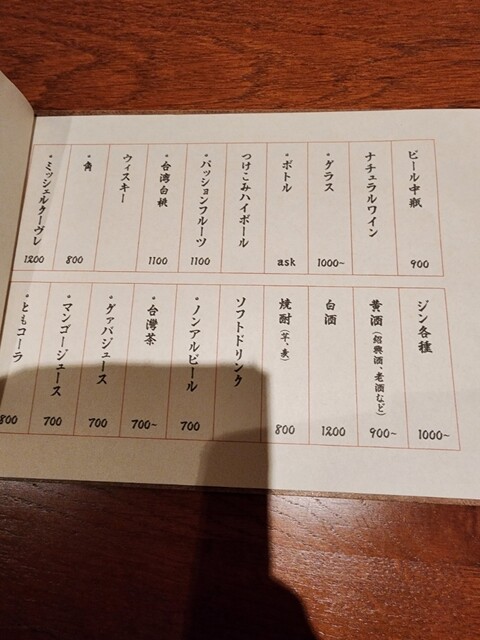 ビール中瓶 900
ナチュラルワイン
・グラス 1000~
・ボトル ask
つけこみハイボール
・パッションフルーツ 1100
・台湾白桃 1100
ウィスキー
・角 800
・ミッシェルクーヴレ 1200
ジン各種 1000~
黄酒(紹興酒、老酒など) 900~
白酒 1200
焼酎(芋、麦) 800
ソフトドリンク
・ノンアルビール 700
・台湾茶 700~
・グァバジュース 700
・マンゴージュース 700
・ともコーラ 800